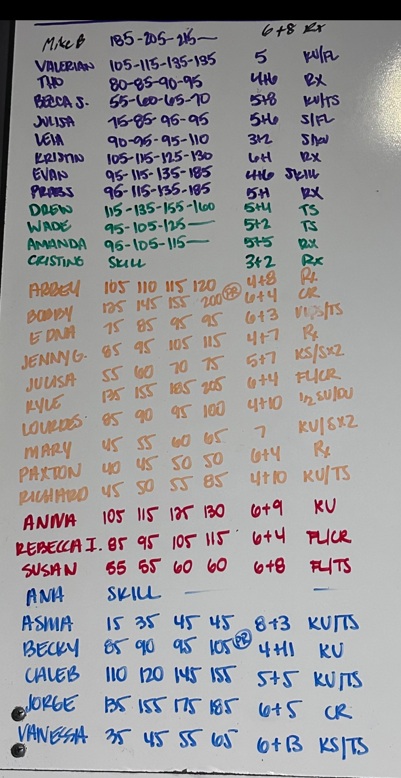 Mike B 185-205-215- 6+8 Rx
VALERIAN 105-115-135-135 5 KU/FL
THO 80-85-90-95 4+6 Rx
BECCA S. 55-60-65-70 5+8 KU/TS
JULISA 75-85-95-95 5+6 S/FL
LEIA 90-95-95-110 3+2
KRISTIN 105-115-125-130 6+1 Rx
EVAN 95-115-135-185 4+6 SKILL
95-115-135-185 5+1 RX
DREW 115-135-155-160 5+4 TS
WADE 95-105-125- 5+2 TS
AMANDA 95-105-115- 5+5 RX
CRISTINE SKILL 3+2 Rx
ABBEY 105 110 115 120 PR 4+8 Rx
BOBBY 125 145 155 200 6+4 CR
EDNA 75 85 95 95 6+3 /TS
JENNY G. 85 95 105 115 4+7 Rx
JULISA 55 60 70 75 5+7 KS/SX2
KYLE 135 155 185 205 6+4 FL/CR
LOURDES 85 90 95 100 4+10 1/2 SU/DU
MARY 45 55 60 65 7 KU/SX2
PAXTON 40 45 50 50 6+4 Rx
RICHARD 45 50 55 85 4+10 KU/TS
ANNA 105 115 125 130 6+9 KU
REBECCA I. 85 95 105 115 6+4 FL/CR
SUSAN 55 55 60 60 6+8 FL/TS
ANA SKILL — —
ASMA 15 35 45 45 8+3 KU/TS
BECKY 85 90 95 105 PR 4+11 KU
CALEB 110 120 145 155 5+5 KU/TS
JORGE 135 155 175 185 6+5 CR
VANESSA 35 45 55 65 6+13 KS/TS